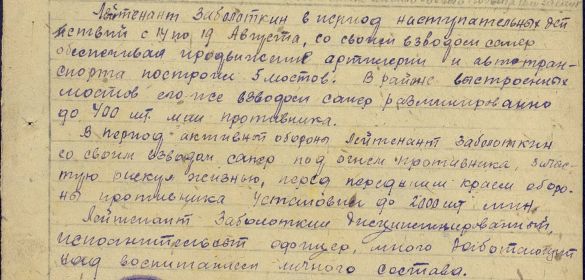 Лейтенант Заболоткин в период наступательных дей
ствий с 14 по 19 Августа, со своим взводом сапер
обеспечивая продвижения артиллерии и автотран-
спорта построил 5 мостов. В районе выстроенных
мостов его же взводом сапер разминированно
до 400 шт. мин противника.
В период активной обороны Лейтенант Заболоткин
со своим взводом сапер под огнем противника, зачас-
тую рискуя жизнью, перед передним краем оборо-
ны противника установил до 2000 шт мин.
Лейтенант Заболоткин дисциплинированный,
исполнительный офицер, много работающий
над воспитанием личного состава.